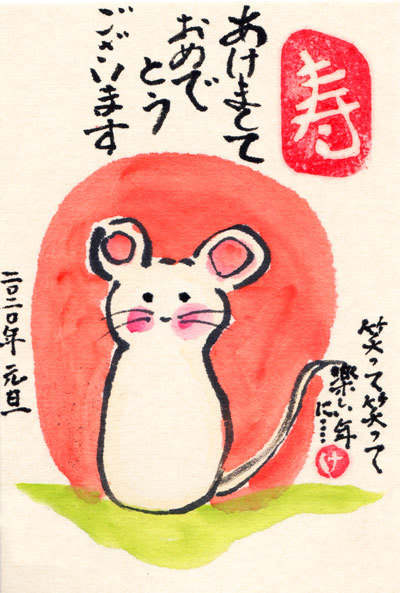 寿
あけまして
おめで
とう
ございます
二〇二〇年 元旦
笑って笑って
楽しい年
に……
け